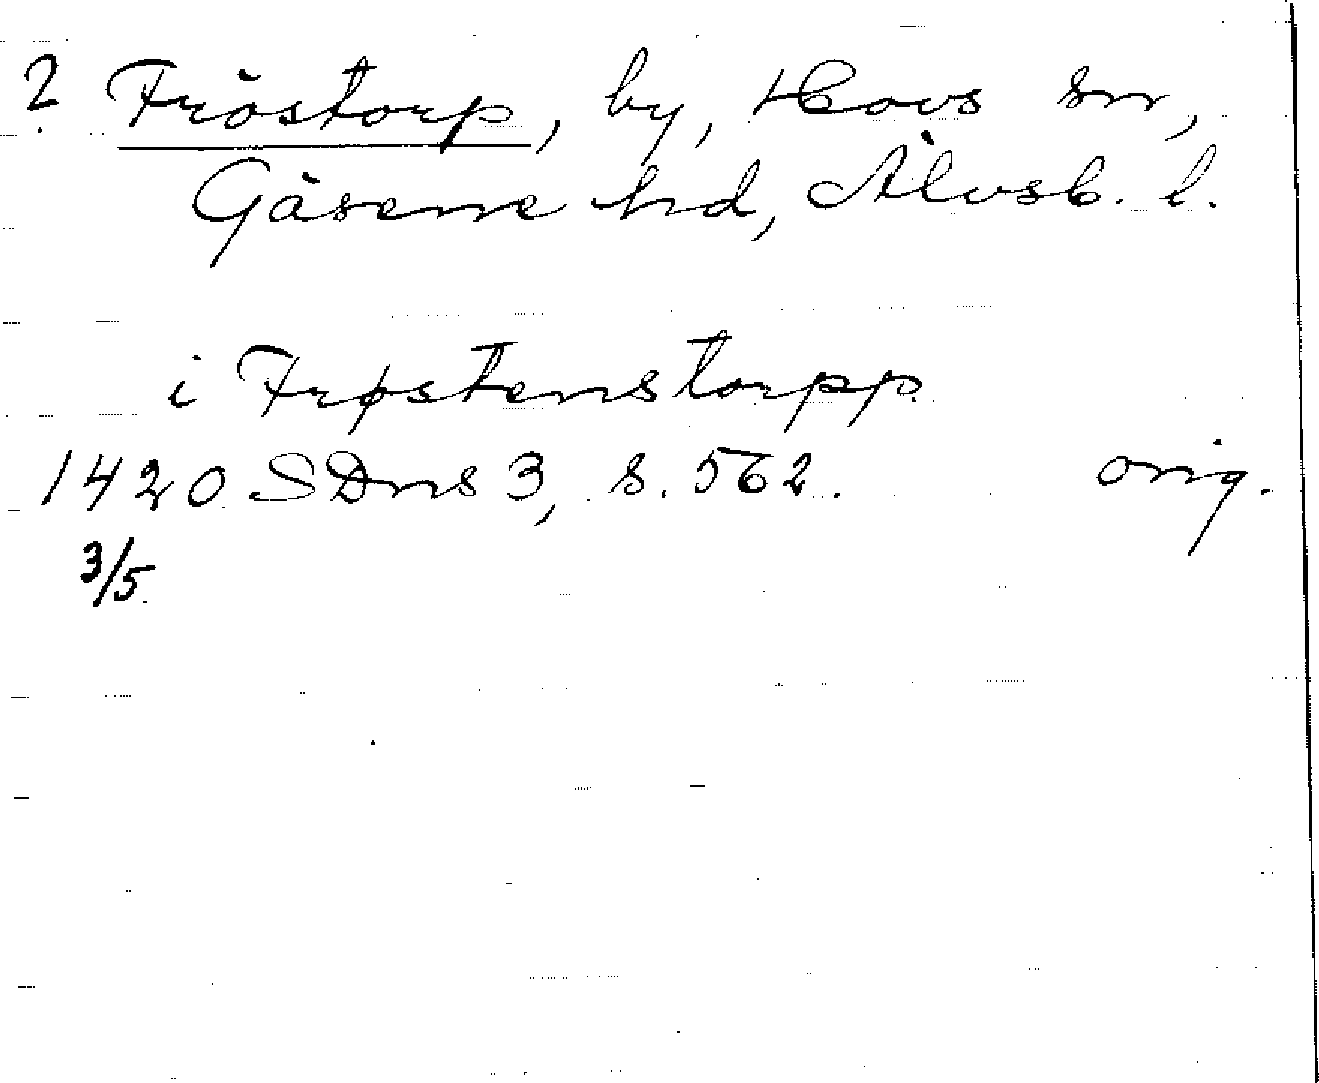 ? Fröstorp, by, Hovs sn,
Gäsene hd, Älvsb. l.
i Frøstenstorpp
1420 SDns 3, s. 562. orig.
3/5